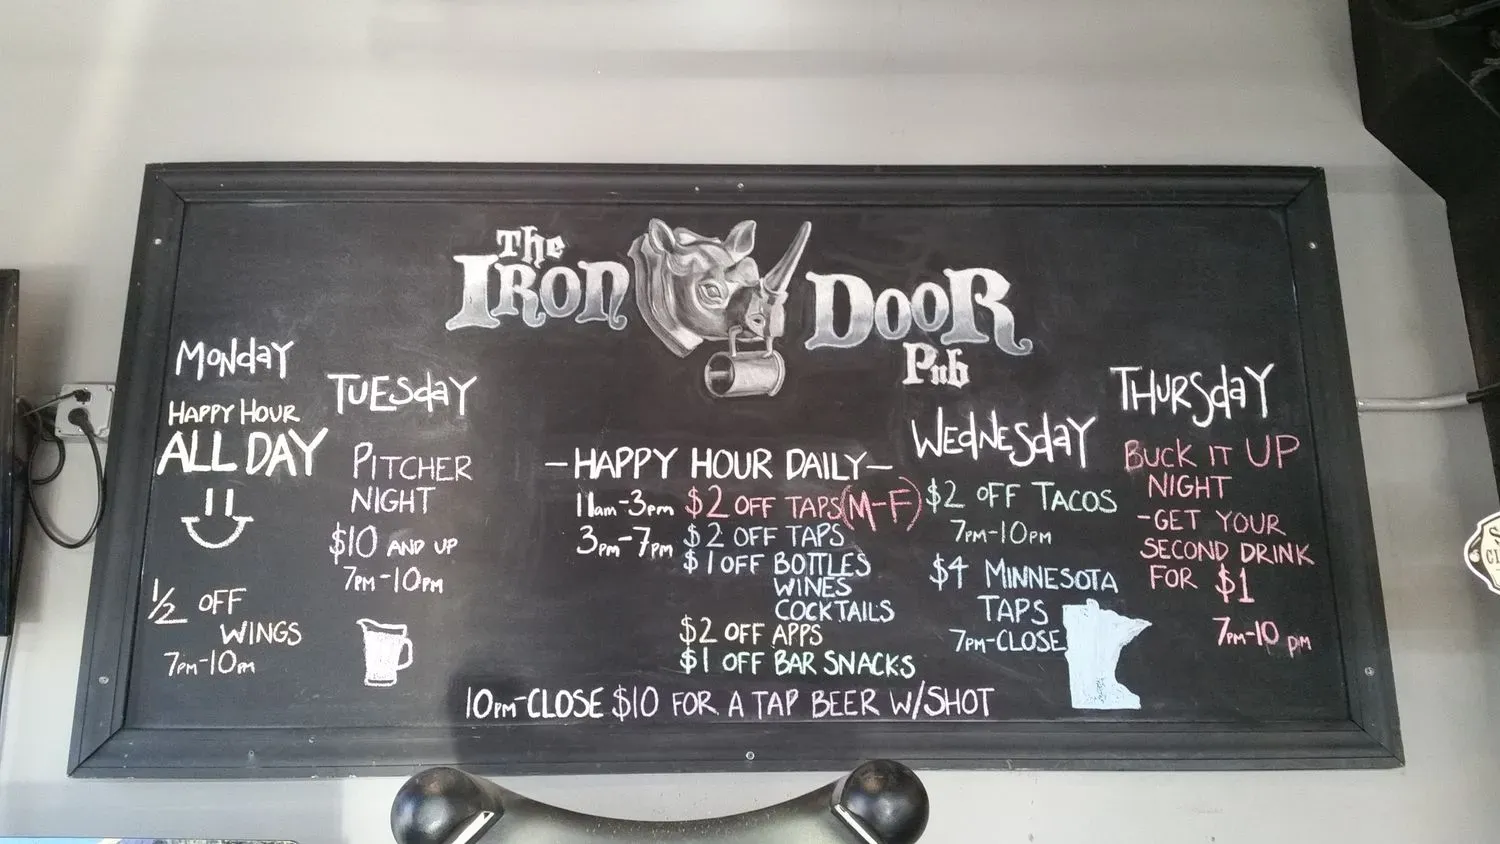 The
Iron Door
Pub
Monday
Happy Hour
ALL DAY
1/2 OFF
WINGS
7pm-10pm
Tuesday
Pitcher
Night
$10 AND UP
7pm-10pm
-HAPPY HOUR DAILY-
11am-3pm $2 OFF TAPS (M-F)
3pm-7pm $2 OFF TAPS
$1 OFF BOTTLES
WINES
COCKTAILS
$2 OFF APPS
$1 OFF BAR SNACKS
10pm-CLOSE $10 FOR A TAP BEER W/SHOT
Wednesday
$2 OFF TACOS
7pm-10pm
$4 MINNESOTA
TAPS
7pm-CLOSE
Thursday
BUCK IT UP
NIGHT
-GET YOUR
SECOND DRINK
FOR $1
7pm-10pm